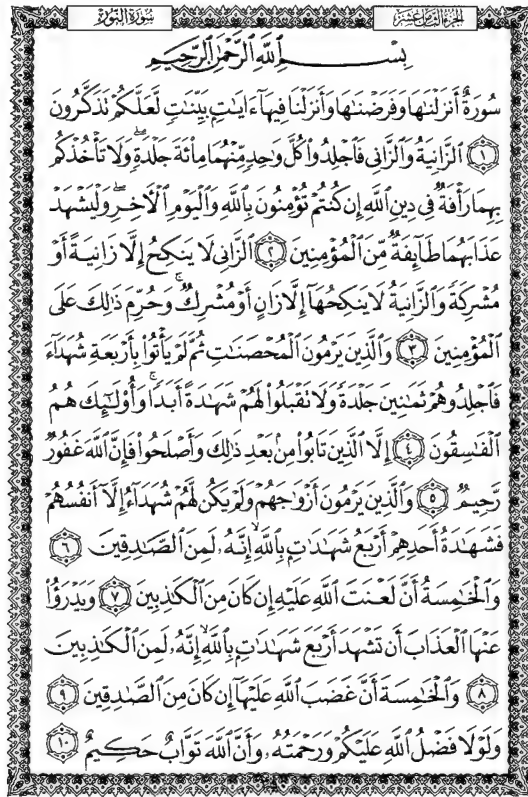 سُورَةُ النُّورِ الجُزْءُ الثَّامِنَ عَشَرَ
بِسْمِ ٱللَّهِ ٱلرَّحْمَٰنِ ٱلرَّحِيمِ
سُورَةٌ أَنزَلْنَٰهَا وَفَرَضْنَٰهَا وَأَنزَلْنَا فِيهَآ ءَايَٰتٍۭ بَيِّنَٰتٍ لَّعَلَّكُمْ تَذَكَّرُونَ
١ ٱلزَّانِيَةُ وَٱلزَّانِى فَٱجْلِدُوا۟ كُلَّ وَٰحِدٍ مِّنْهُمَا مِا۟ئَةَ جَلْدَةٍ ۖ وَلَا تَأْخُذْكُم
بِهِمَا رَأْفَةٌ فِى دِينِ ٱللَّهِ إِن كُنتُمْ تُؤْمِنُونَ بِٱللَّهِ وَٱلْيَوْمِ ٱلْءَاخِرِ ۖ وَلْيَشْهَدْ
عَذَابَهُمَا طَآئِفَةٌ مِّنَ ٱلْمُؤْمِنِينَ ٢ ٱلزَّانِى لَا يَنكِحُ إِلَّا زَانِيَةً أَوْ
مُشْرِكَةً وَٱلزَّانِيَةُ لَا يَنكِحُهَآ إِلَّا زَانٍ أَوْ مُشْرِكٌ ۚ وَحُرِّمَ ذَٰلِكَ عَلَى
ٱلْمُؤْمِنِينَ ٣ وَٱلَّذِينَ يَرْمُونَ ٱلْمُحْصَنَٰتِ ثُمَّ لَمْ يَأْتُوا۟ بِأَرْبَعَةِ شُهَدَآءَ
فَٱجْلِدُوهُمْ ثَمَٰنِينَ جَلْدَةً وَلَا تَقْبَلُوا۟ لَهُمْ شَهَٰدَةً أَبَدًا ۚ وَأُو۟لَٰٓئِكَ هُمُ
ٱلْفَٰسِقُونَ ٤ إِلَّا ٱلَّذِينَ تَابُوا۟ مِنۢ بَعْدِ ذَٰلِكَ وَأَصْلَحُوا۟ فَإِنَّ ٱللَّهَ غَفُورٌ
رَّحِيمٌ ٥ وَٱلَّذِينَ يَرْمُونَ أَزْوَٰجَهُمْ وَلَمْ يَكُن لَّهُمْ شُهَدَآءُ إِلَّآ أَنفُسُهُمْ
فَشَهَٰدَةُ أَحَدِهِمْ أَرْبَعُ شَهَٰدَٰتٍۭ بِٱللَّهِ ۙ إِنَّهُۥ لَمِنَ ٱلصَّٰدِقِينَ ٦
وَٱلْخَٰمِسَةُ أَنَّ لَعْنَتَ ٱللَّهِ عَلَيْهِ إِن كَانَ مِنَ ٱلْكَٰذِبِينَ ٧ وَيَدْرَؤُا۟
عَنْهَا ٱلْعَذَابَ أَن تَشْهَدَ أَرْبَعَ شَهَٰدَٰتٍۭ بِٱللَّهِ ۙ إِنَّهُۥ لَمِنَ ٱلْكَٰذِبِينَ
٨ وَٱلْخَٰمِسَةَ أَنَّ غَضَبَ ٱللَّهِ عَلَيْهَآ إِن كَانَ مِنَ ٱلصَّٰدِقِينَ ٩
وَلَوْلَا فَضْلُ ٱللَّهِ عَلَيْكُمْ وَرَحْمَتُهُۥ وَأَنَّ ٱللَّهَ تَوَّابٌ حَكِيمٌ ١٠